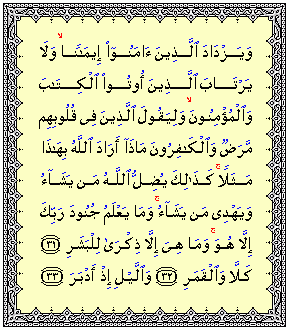 وَيَزْدَادَ ٱلَّذِينَ ءَامَنُوٓا۟ إِيمَـٰنًا ۙ وَلَا
يَرْتَابَ ٱلَّذِينَ أُوتُوا۟ ٱلْكِتَـٰبَ
وَٱلْمُؤْمِنُونَ ۙ وَلِيَقُولَ ٱلَّذِينَ فِى قُلُوبِهِم
مَّرَضٌ وَٱلْكَـٰفِرُونَ مَاذَآ أَرَادَ ٱللَّهُ بِهَـٰذَا
مَثَلًا ۚ كَذَٰلِكَ يُضِلُّ ٱللَّهُ مَن يَشَآءُ
وَيَهْدِى مَن يَشَآءُ ۚ وَمَا يَعْلَمُ جُنُودَ رَبِّكَ
إِلَّا هُوَ ۚ وَمَا هِىَ إِلَّا ذِكْرَىٰ لِلْبَشَرِ ﴿٣١﴾
كَلَّا وَٱلْقَمَرِ ﴿٣٢﴾ وَٱلَّيْلِ إِذْ أَدْبَرَ ﴿٣٣﴾